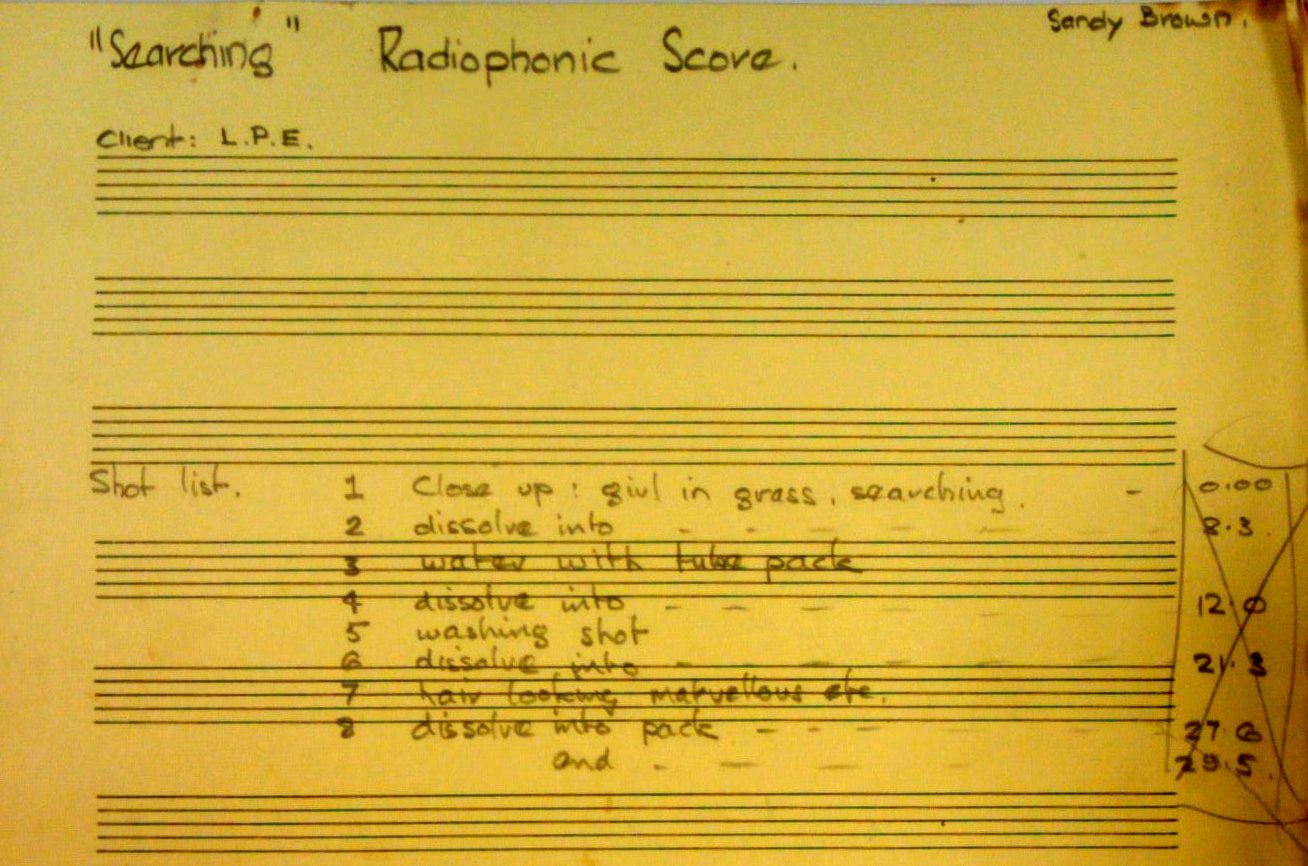 Sandy Brown.
"Searching" Radiophonic Score.
Client: L.P.E.
Shot list. 1 Close up : girl in grass, searching. - 0.00
2 dissolve into - - - - - - 8.3
3 water with tube pack
4 dissolve into - - - - - - 12.0
5 washing shot
6 dissolve into - - - - - - 21.3
7 hair looking marvellous etc.
8 dissolve into pack - - - - - - 27.6
and - - - - 29.5